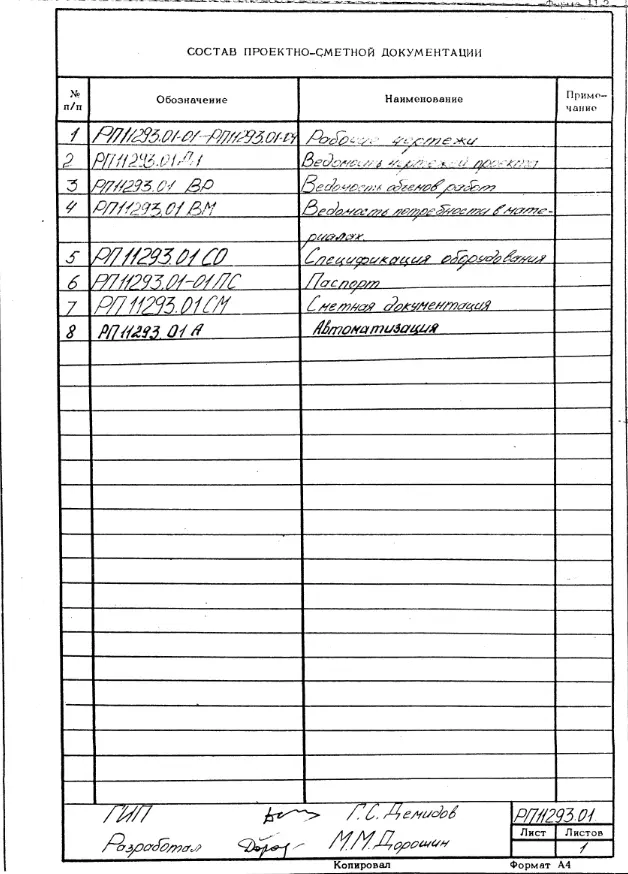 Форма 11.2
СОСТАВ ПРОЕКТНО-СМЕТНОЙ ДОКУМЕНТАЦИИ
№ п/п Обозначение Наименование Приме-чание
1 РП11293.01-01-РП11293.01-04 Рабочие чертежи
2 РП11293.01 Ведомость чертежей проекта
3 РП11293.01 ВР Ведомость объемов работ
4 РП11293.01 ВМ Ведомость потребности в мате-
риалах.
5 РП11293.01 СО Спецификация оборудования
6 РП11293.01-01 ПС Паспорт
7 РП11293.01 СМ Сметная документация
8 РП11293.01 А Автоматизация
ГИП Г.С. Демидов РП11293.01
Лист Листов
Разработал М.М. Дорошин 1
Копировал Формат А4